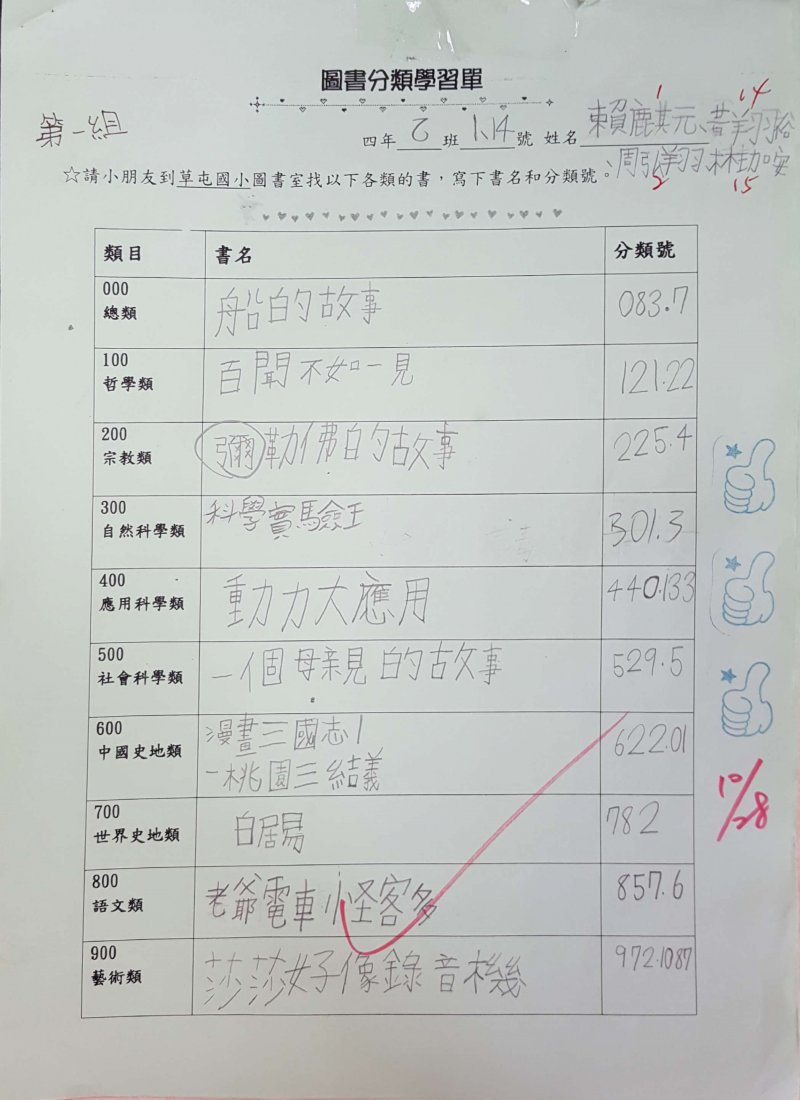 圖書分類學習單
第一組
四年乙班1、14號 姓名賴鹿其元、黃翔裕
1 14
、周弘翔、林劭安
2 15
☆請小朋友到草屯國小圖書室找以下各類的書,寫下書名和分類號。
類目 書名 分類號
000
總類 船的故事 083.7
100
哲學類 百聞不如一見 121.22
200
宗教類 彌勒佛的故事 225.4
300
自然科學類 科學實驗王 301.3
400
應用科學類 動力大應用 440.133
500
社會科學類 一個母親的故事 529.5
600
中國史地類 漫畫三國志1
一桃園三結義 622.01
700
世界史地類 白居易 782
800
語文類 老爺電車小怪客多 857.6
900
藝術類 莎莎好像錄音機 972.1087
10/28